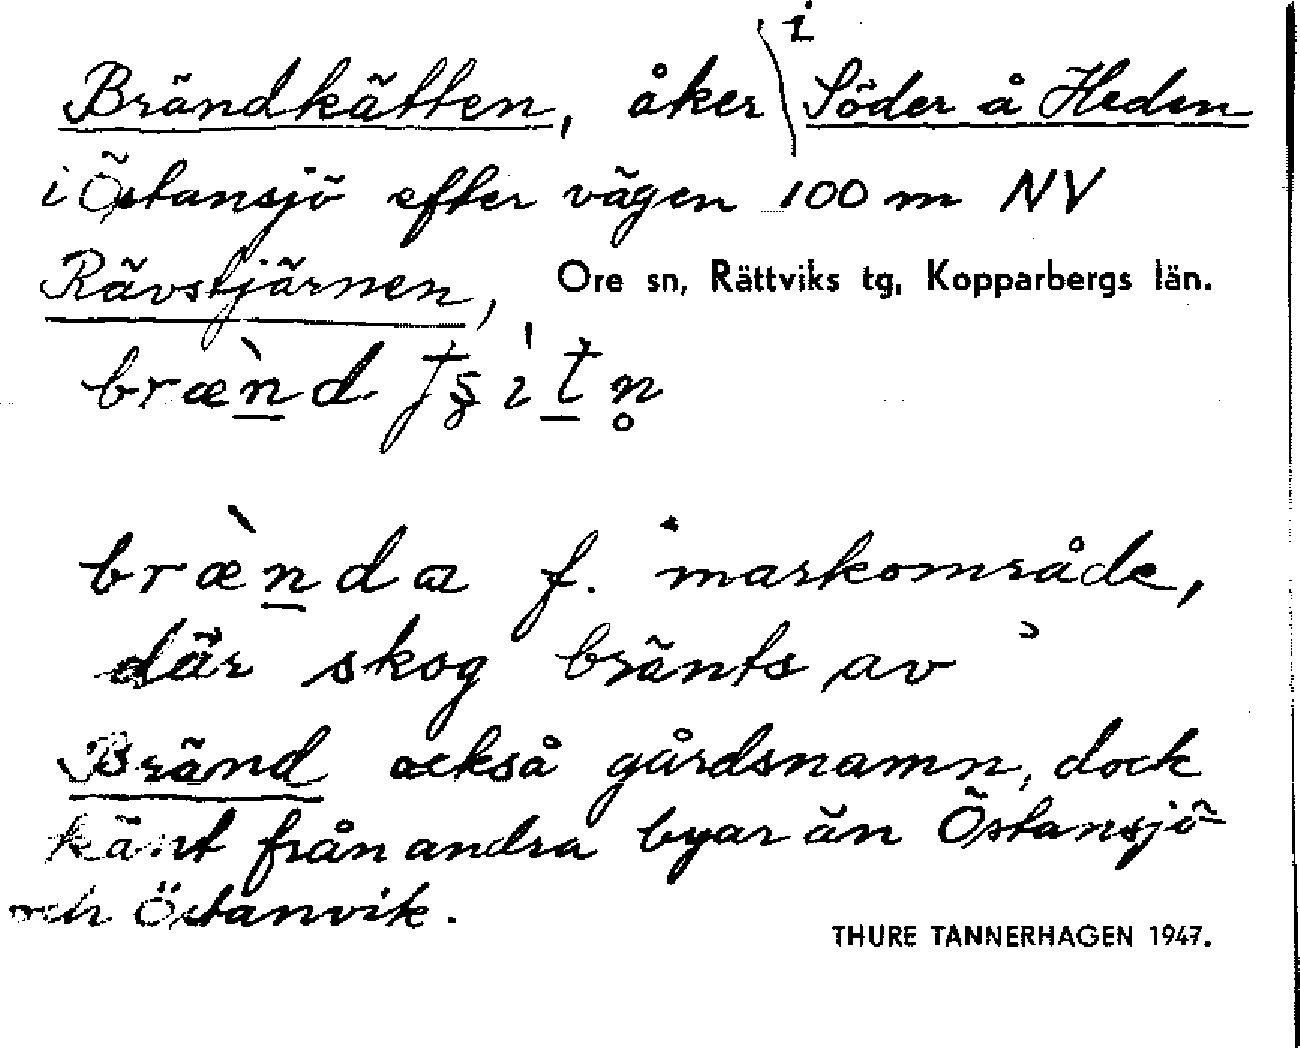 Brändkätten, åker i Söder å Heden
i Östansjö efter vägen 100 m NV
Rävstjärnen, Ore sn, Rättviks tg, Kopparbergs län.
bræ̀nd
bræ̀nda f. markområde,
där skog bränts av
Bränd också gårdsnamn, dock
känt från andra byar än Östansjö
och Östanvik.
THURE TANNERHAGEN 1947.